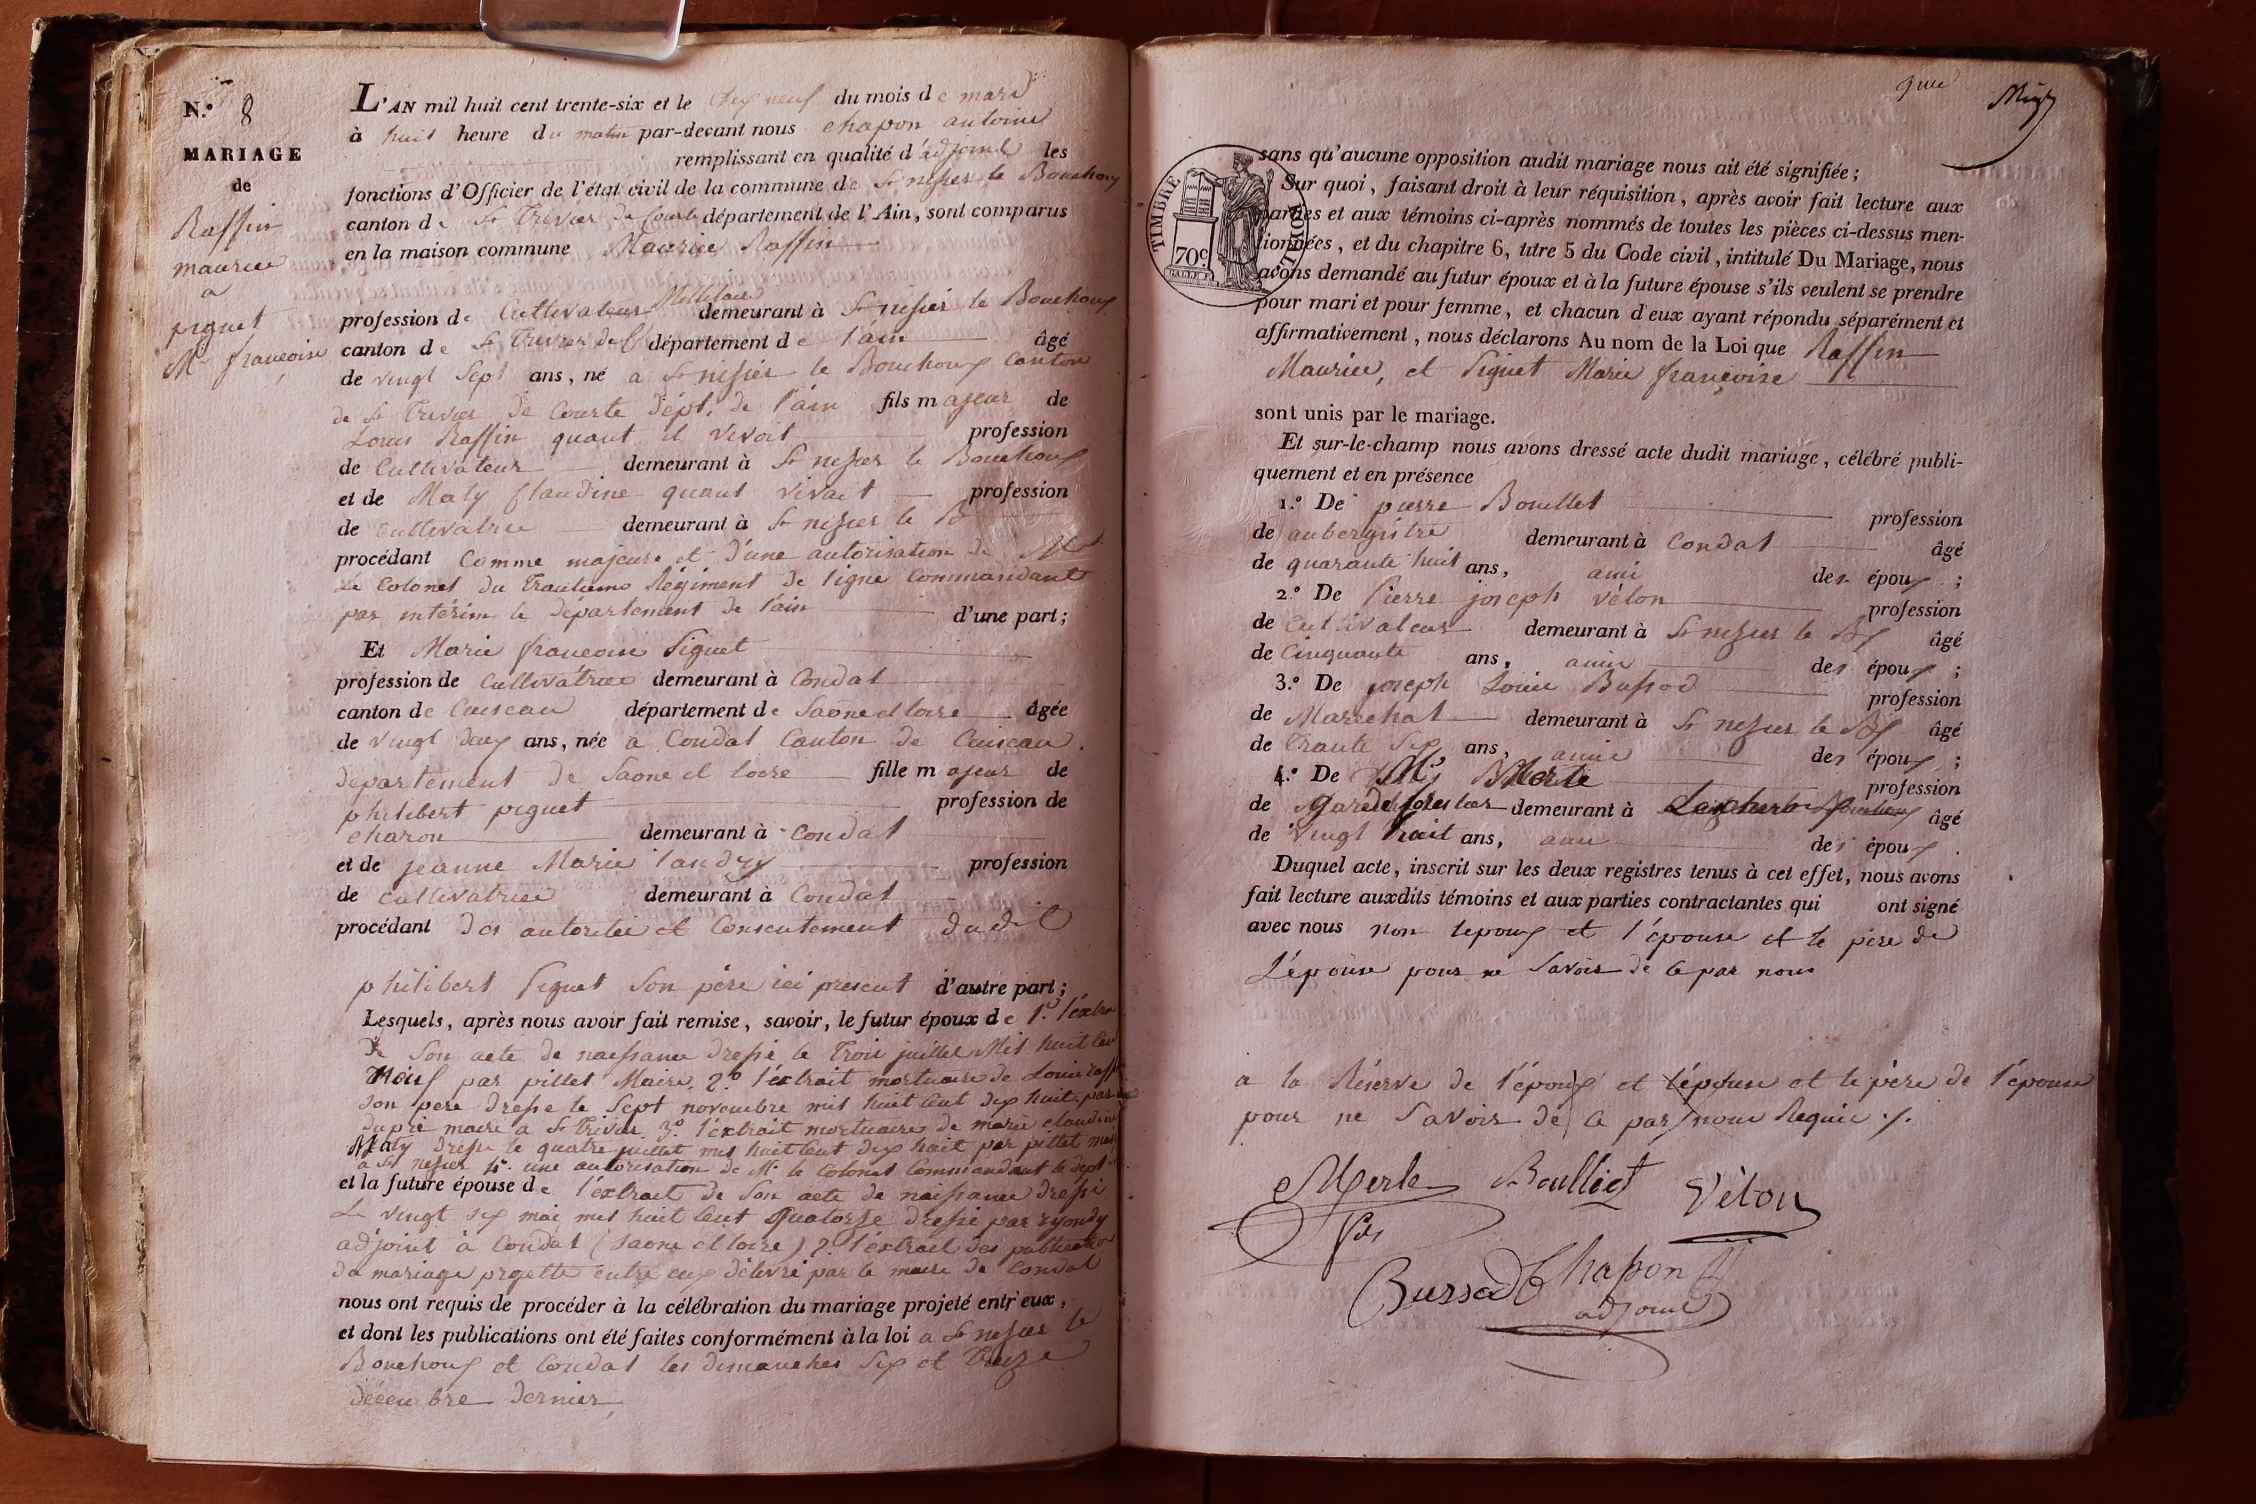 N.º 8
MARIAGE
de
Raffin
maurice
a
piguet
Mie françoise
L'AN mil huit cent trente-six et le dix neuf du mois de mars
à huit heure du matin par-devant nous chapon antoine
remplissant en qualité d'adjoint les
fonctions d'Officier de l'état civil de la commune de St nisier le Bouchoux
canton de St Trivier de Courte département de l'Ain, sont comparus
en la maison commune Maurice Raffin
Militaire
profession de Cultivateur demeurant à St nisier le Bouchoux
canton de St Trivier de C département de l'ain âgé
de vingt Sept ans, né a St nisier le Bouchoux Canton
de St Trivier de Courte dépt. de l'ain fils majeur de
Louis Raffin quant il vivoit profession
de Cultivateur demeurant à St nisier le Bouchoux
et de Maty Claudine quant vivait profession
de cultivatrice demeurant à St nisier le B
procédant Comme majeure et d'une autorisation de Mr
Le Colonel du Trantieme Régiment de ligne Commandant
par intérim le département de l'ain d'une part;
Et Marie françoise Piguet
profession de Cultivatrice demeurant à Condal
canton de Cuiseau département de Saone et loire âgée
de vingt deux ans, née a Condal Canton de Cuiseau.
departement de Saone et loire fille majeur de
philibert piguet profession de
charon demeurant à Condal
et de jeanne Marie landry profession
de cultivatrice demeurant à Condal
procédant des autorité et Consentement dudit
philibert Piguet Son père ici present d'autre part;
Lesquels, après nous avoir fait remise, savoir, le futur époux de 1.º l'éxtrait
de Son acte de naissance dressé le Trois juillet Mil huit Cent
Neuf par pillet Maire, 2.º l'éxtrait mortuaire de Louis raffin
Son pere dressé le Sept novembre mil huit Cent dix huit par
dupré maire a St Trivier 3.º l'éxtrait mortuaire de marie claudine
Maty dressé le quatre juillet mil huit Cent dix huit par pillet maire
a St nisier 4.º une autorisation de Mr le Colonel Commandant le dépt
et la future épouse de l'éxtrait de Son acte de naissance dressé
Le vingt six mai mil huit Cent Quatorze dressé par
adjoint à Condal (Saone et loire) 2.º l'éxtrait des publications
de mariage projetté entre eux délivré par le maire de Condal
nous ont requis de procéder à la célébration du mariage projeté entr'eux,
et dont les publications ont été faites conformément à la loi a St nisier le
Bouchoux et Condal les dimanches Six et Treize
décembre dernier
sans qu'aucune opposition audit mariage nous ait été signifiée;
TIMBRE ROYAL
70 c.
Sur quoi, faisant droit à leur réquisition, après avoir fait lecture aux
parties et aux témoins ci-après nommés de toutes les pièces ci-dessus men-
tionnées, et du chapitre 6, titre 5 du Code civil, intitulé Du Mariage, nous
avons demandé au futur époux et à la future épouse s'ils veulent se prendre
pour mari et pour femme, et chacun d'eux ayant répondu séparément et
affirmativement, nous déclarons Au nom de la Loi que Raffin
Maurice, et Piguet Marie françoise
sont unis par le mariage.
Et sur-le-champ nous avons dressé acte dudit mariage, célébré publi-
quement et en présence
1.º De pierre Bouillet profession
de aubergistre demeurant à Condal âgé
de quarante huit ans, ami des époux;
2.º De Pierre joseph vélon profession
de Cultivateur demeurant à St nisier le Bx âgé
de Cinquante ans, amie des époux;
3.º De joseph Louie Bussod profession
de Marechal demeurant à St nisier le Bx âgé
de Trante Six ans, amie des époux;
4.º De Merle profession
de Garde forestier demeurant à âgé
de vingt huit ans, ami des époux.
Duquel acte, inscrit sur les deux registres tenus à cet effet, nous avons
fait lecture auxdits témoins et aux parties contractantes qui ont signé
avec nous non lepoux et l'épouse et le père de
L'épouse pour ne Savoir de ce par nous
a la Réserve de l'époux et l'épouse et le père de l'épouse
pour ne Savoir de ce par nous Requis
Merle Boulliet Vélon
fils
Bussod Chapon
adjoint